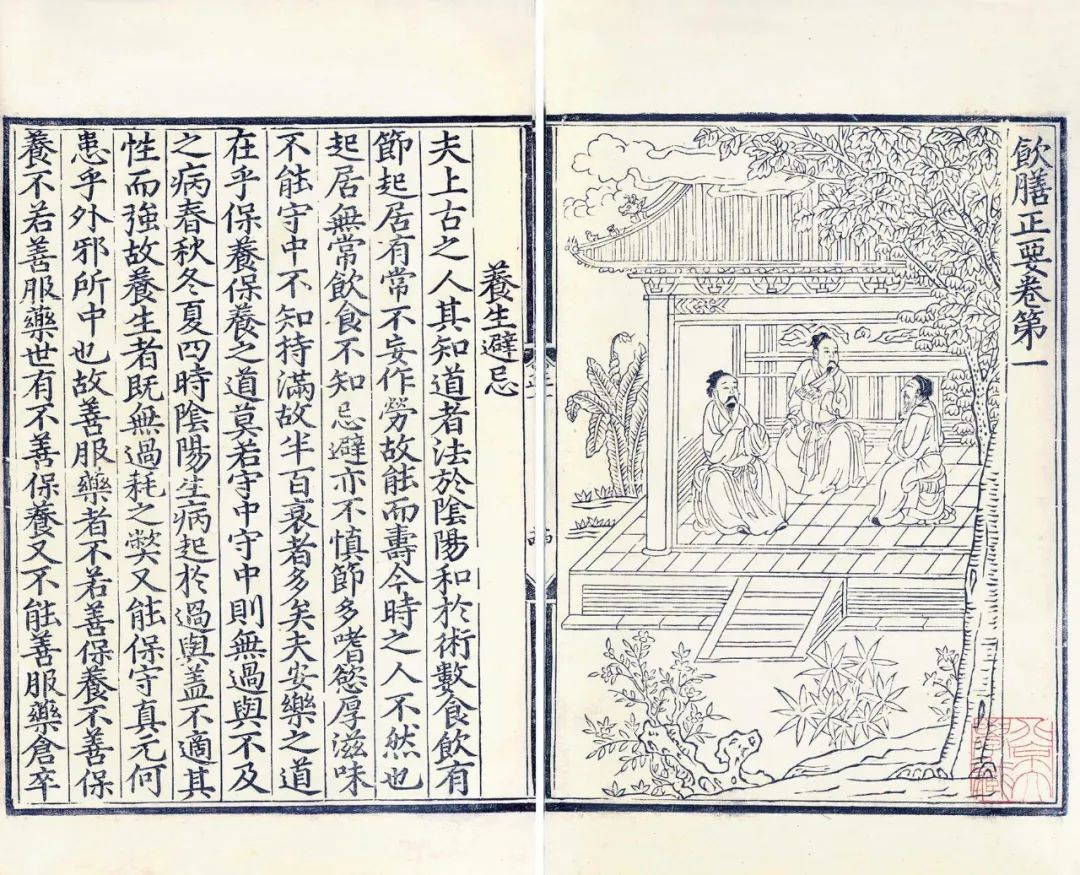 飲膳正要卷第一
養生避忌
夫上古之人其知道者法於陰陽和於術數食飲有
節起居有常不妄作勞故能而壽今時之人不然也
起居無常飲食不知忌避亦不慎節多嗜慾厚滋味
不能守中不知持滿故半百衰者多矣夫安樂之道
在乎保養保養之道莫若守中守中則無過與不及
之病春秋冬夏四時陰陽生病起於過與盖不適其
性而強故養生者既無過耗之獘又能保守真元何
患乎外邪所中也故善服藥者不若善保養不善保
養不若善服藥世有不善保養又不能善服藥倉卒